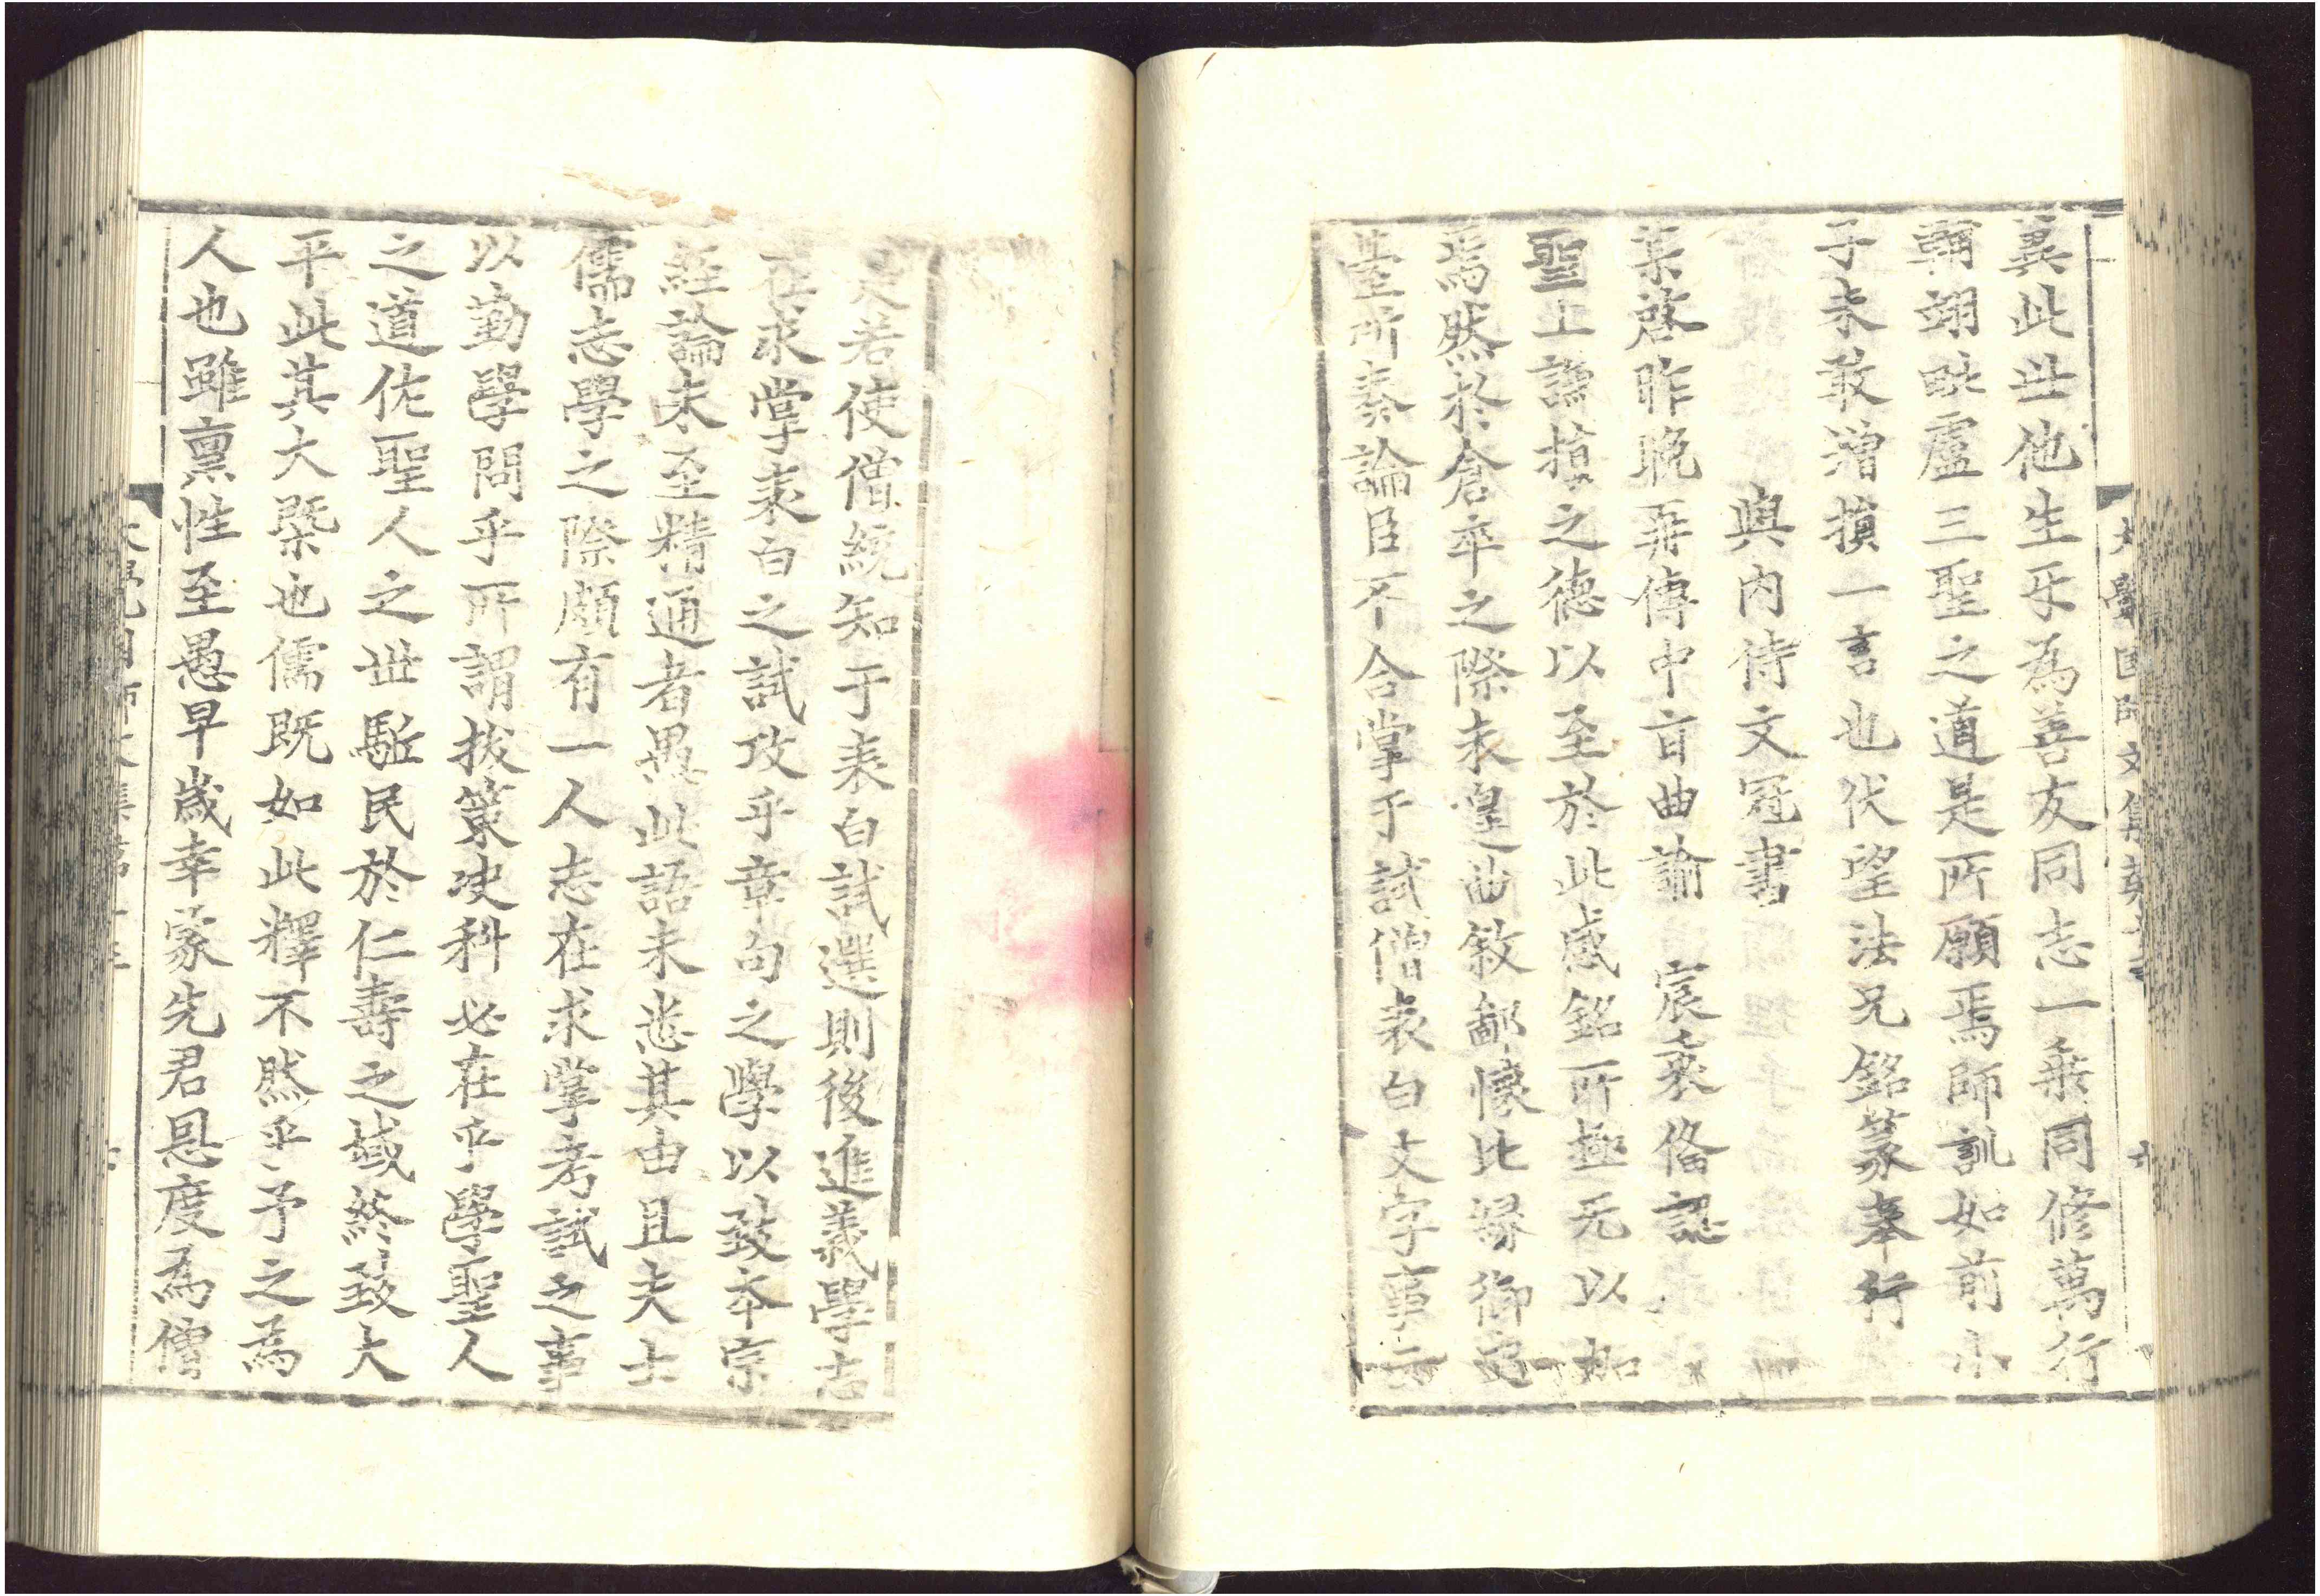 大覺國師文集第十三
冀此世他生乐為善友同志一乗同修萬行
輔翊毗盧三聖之道是所願焉師訓如前小
子未敢增損一言也伏望法兄銘篆奉行
與内侍文冠書
某啓昨晚再傳中盲曲諭 宸衷俻認
聖上謙損之德以至於此感銘所極无以加
焉然於倉卒之際未遑曲敘鄙懷比縁御
臺所奏論臣不合掌于試僧表白文字事
若使僧統知于表白試選則後進義學志
在求掌表白之試攻乎章句之學以致夲宗
經論未至精通者愚此語未悉其由且夫士
儒志學之際頗有一人志在求掌考試之事
以勤學問乎所謂拔策决科必在乎學聖人
之道佐聖人之世駈民於仁壽之域終致大
平此其大槩也儒既如此釋不然乎予之為
人也雖禀性至愚早歲幸蒙先君恩度為僧